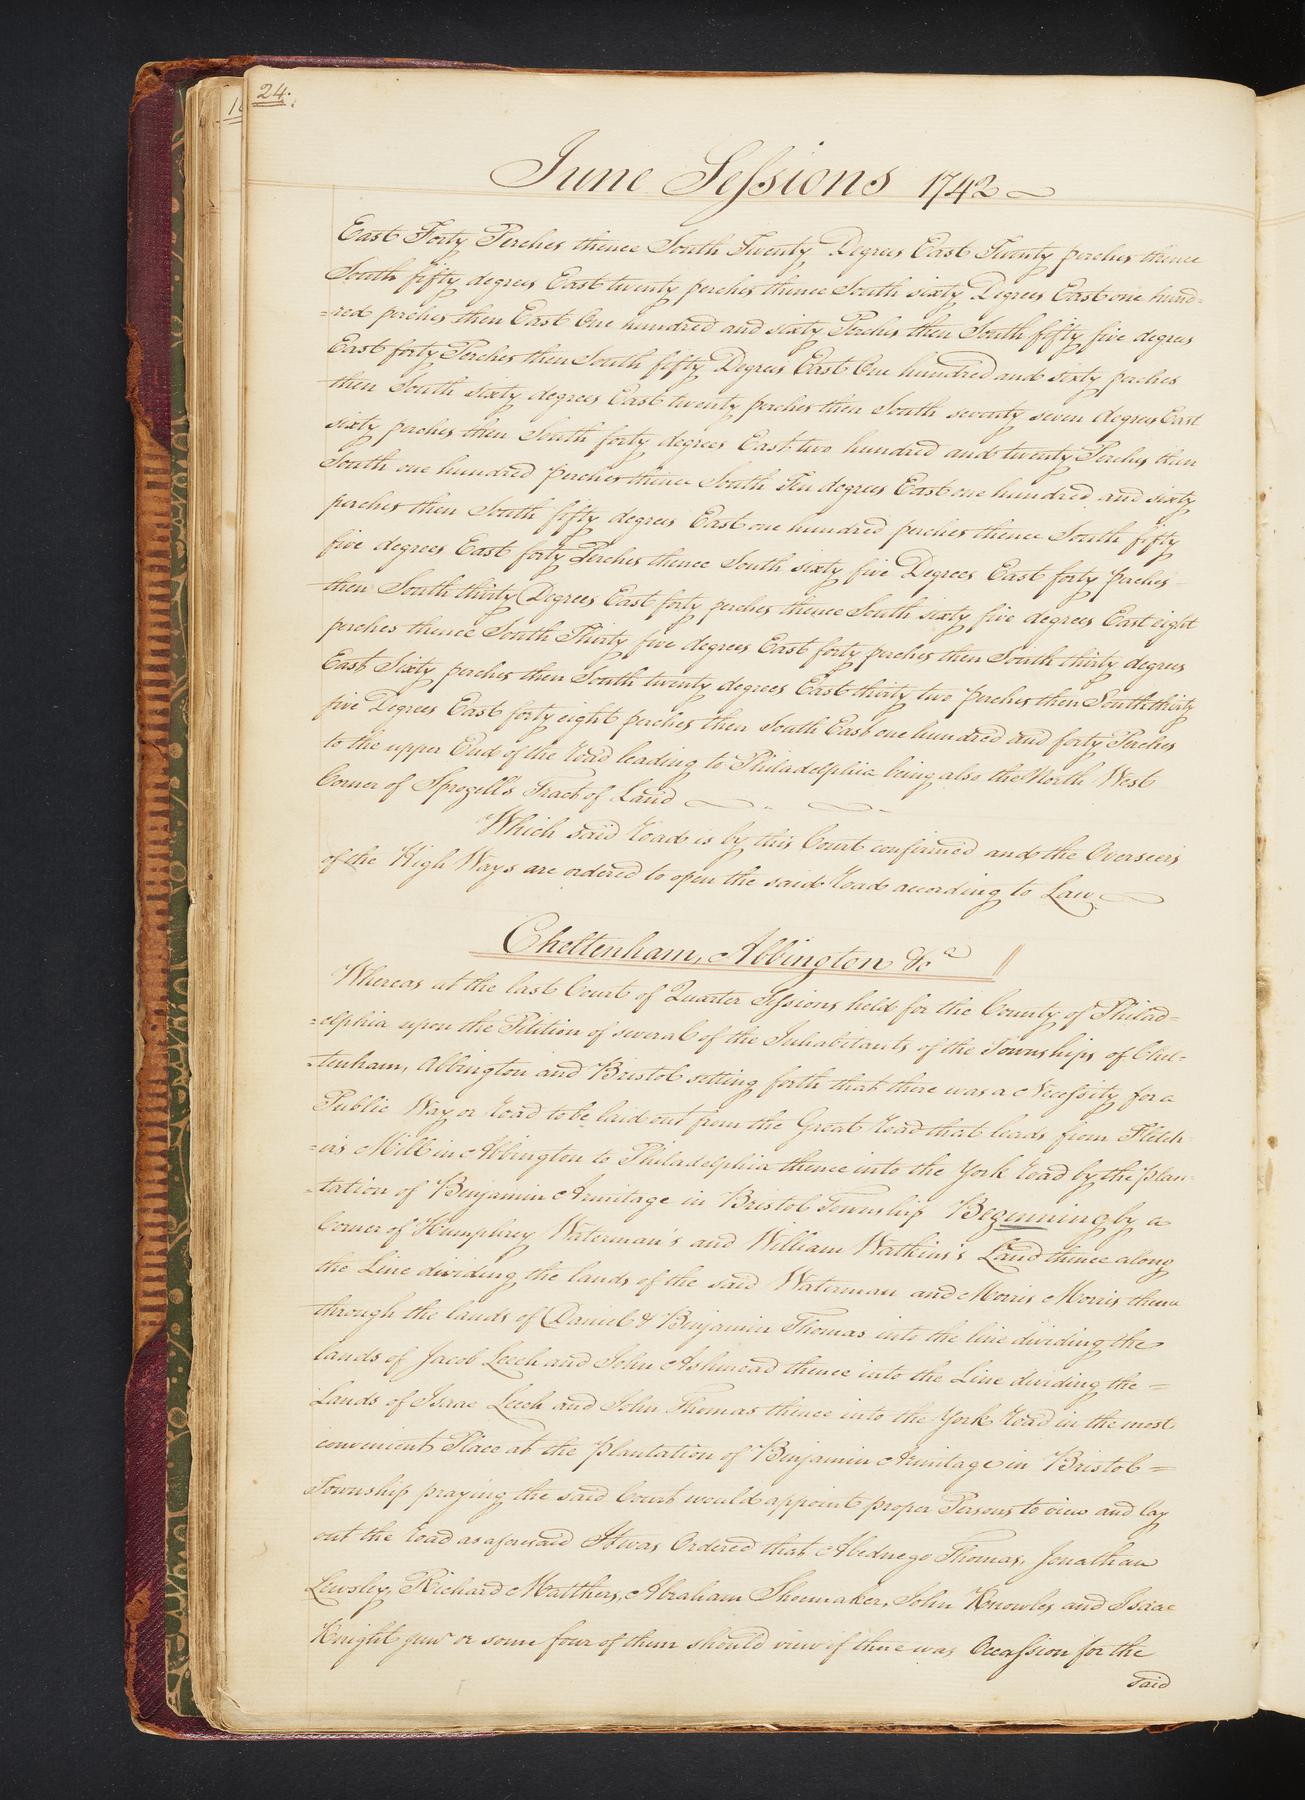 24.
June Sessions 1742
East Forty Perches thence South Twenty Degrees East Twenty perches thence
South fifty degrees East twenty perches thence South sixty Degrees East one hund=
=red perches then East One hundred and sixty Perches then South fifty five degrees
East forty Perches then South fifty Degrees East One hundred and sixty perches
then South sixty degrees East twenty perches then South seventy seven degrees East
sixty perches then South forty degrees East two hundred and twenty Perches then
South one hundred perches thence South Ten degrees East one hundred and sixty
perches then South fifty degrees East one hundred perches thence South fifty
five degrees East forty Perches thence South sixty five Degrees East forty perches
then South thirty Degrees East forty perches thence South sixty five degrees East eight
perches thence South Thirty five degrees East forty perches then South thirty degrees
East Sixty perches then South twenty degrees East thirty two perches then South thirty
five Degrees East forty eight perches then South East one hundred and forty Perches
to the upper End of the Road leading to Philadelphia being also the North West
Corner of Sprogell's Tract of Land
Which said Road is by this Court confirmed and the Overseers
of the High Ways are ordered to open the said Road according to Law
Cheltenham, Abbington &c
Whereas at the last Court of Quarter Sessions held for the County of Philad=
=elphia upon the Petition of several of the Inhabitants of the Townships of Chel=
=tenham, Abbington and Bristol setting forth that there was a Necessity for a
Public Way or Road to be laid out from the Great Road that leads from Fletch=
=er's Mill in Abbington to Philadelphia thence into the York Road by the plan=
=tation of Benjamin Armitage in Bristol Township Beginning by a
Corner of Humphrey Waterman's and William Watkins's Land thence along
the Line dividing the lands of the said Waterman and Morris Morris thence
through the lands of Daniel & Benjamin Thomas into the line dividing the
lands of Jacob Leech and John Ashmead thence into the Line dividing the =
Lands of Isaac Leech and John Thomas thence into the York Road in the most
convenient Place at the plantation of Benjamin Armitage in Bristol =
Township praying the said Court would appoint proper Persons to view and lay
out the Road as aforesaid It was Ordered that Abednego Thomas, Jonathan
Lewsley, Richard Matthers, Abraham Shoemaker, John Knowles and Isaac
Knight junr or some four of them should view if there was Occassion for the
said